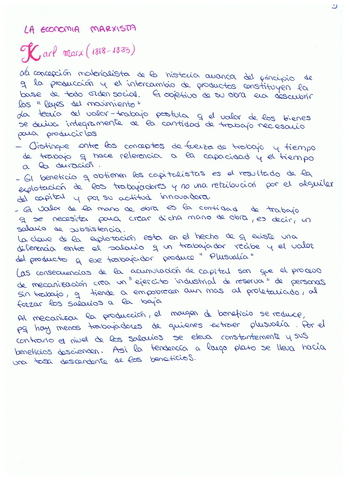 LA ECONOMIA MARXISTA
Karl Marx (1818-1883)
La concepción materialista de la historia avanca del principio de
q la producción y el intercambio de productos constituyen la
base de todo orden social. El objetivo de su obra era descubrir
las "leyes del movimiento"
La teoría del valor-trabajo postula q el valor de los bienes
se deriva integramente de la cantidad de trabajo necesario
para producirlos
- Distingue entre los conceptos de fuerza de trabajo y tiempo
de trabajo q hace referencia a la capacidad y el tiempo
a la duración.
- El beneficio q obtienen los capitalistas es el resultado de la
explotación de los trabajadores y no una retribucion por el alquiler
del capital y por su actitud innovadora.
- El valor de la mano de obra es la cantidad de trabajo
q se necesita para crear dicha mano de obra, es decir, un
salario de subsistencia.
La clave de la explotación esta en el hecho de q existe una
diferencia entre el salario q un trabajador recibe y el valor
del producto q ese trabajador produce "Plusvalia"
Las consecuencias de la acumulacion de capital son que el proceso
de mecanización crea un "ejercito industrial de reserva" de personas
sin trabajo, q tiende a empobrecer aun mas al proletariado, al
forzar los salarios a la baja
Al mecanizar la producción, el margen de beneficio se reduce,
pq hay menos trabajadores de quienes extraer plusvalia. Por el
contrario el nivel de los salarios se eleva constantemente y sus
beneficios descienden. Asi la tendencia a largo plazo se lleva hacia
una tasa descendente de los beneficios.